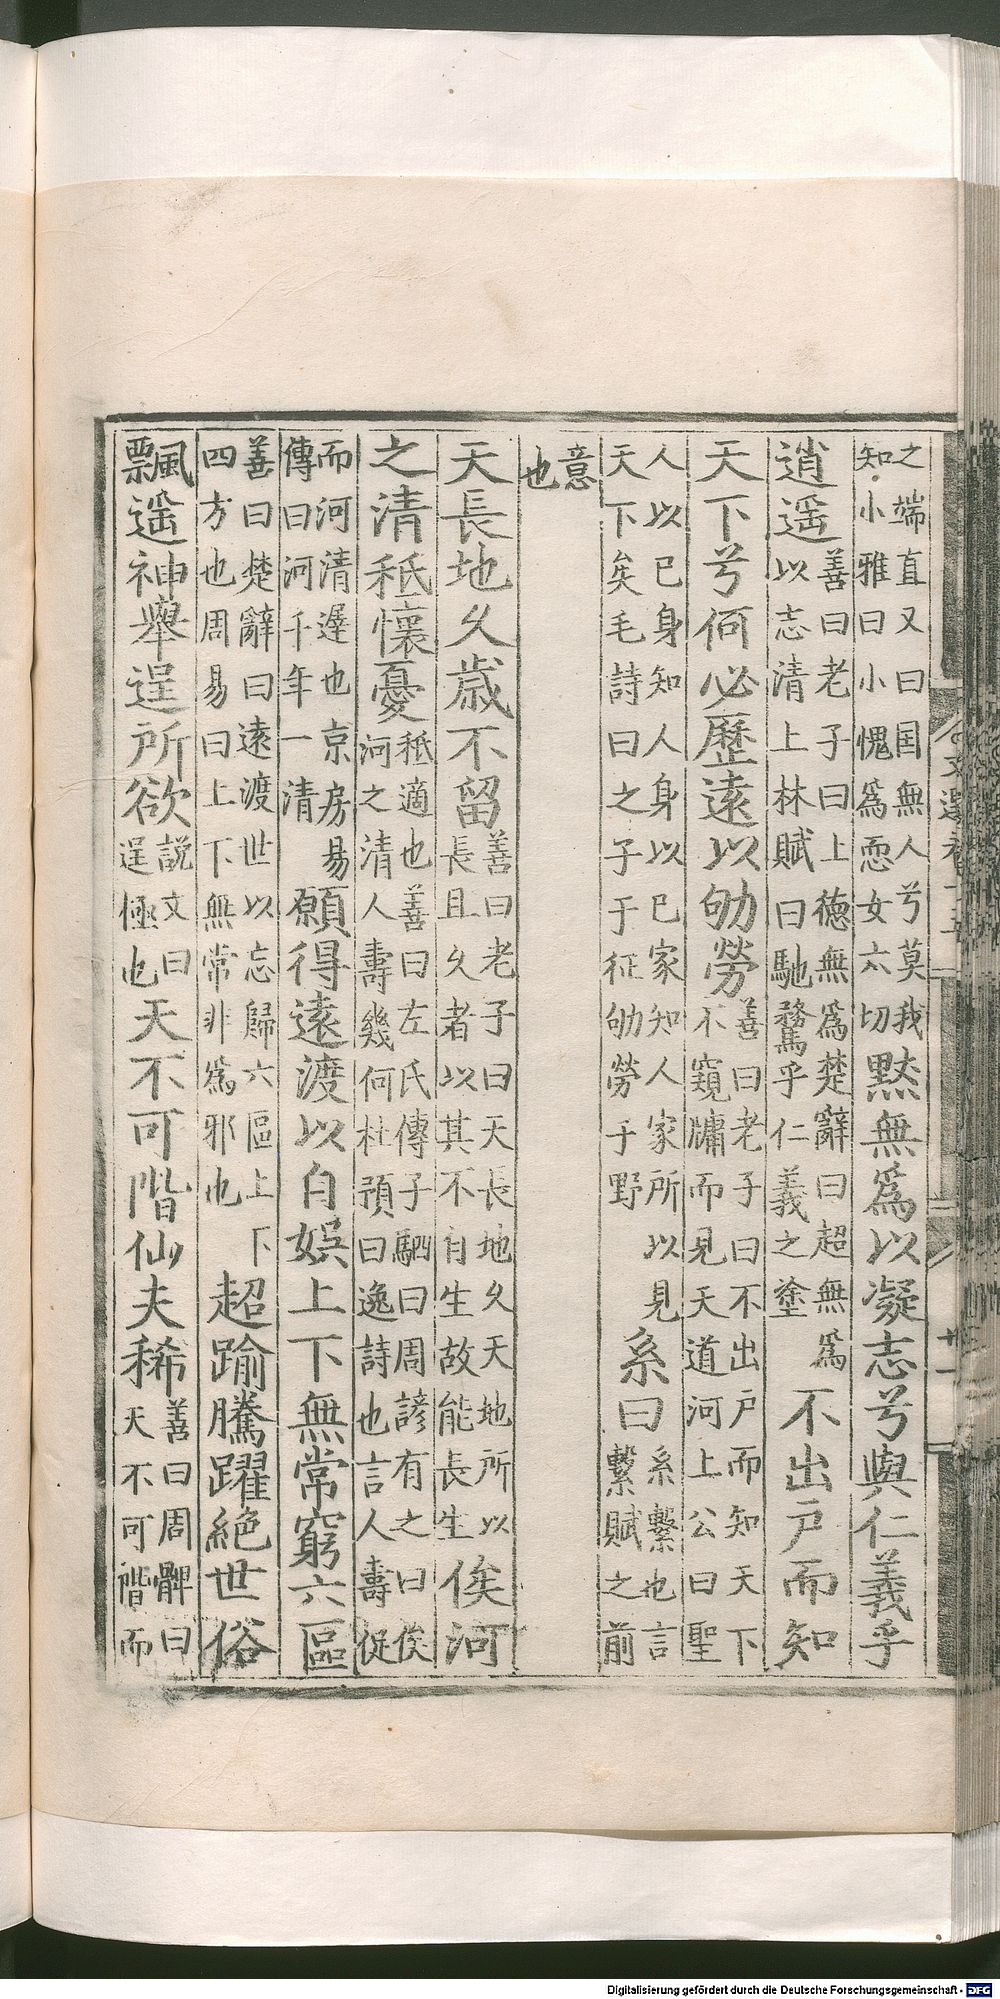 之端直又曰国無人兮莫我
知小雅曰小愧爲恧女六切黙無爲以凝志兮與仁義乎
逍遥善曰老子曰上德無爲楚辭曰超無爲
以志清上林賦曰馳騖乎仁義之塗不出戶而知
天下兮何必歷遠以劬勞善曰老子曰不出戶而知天下
不窺牖而見天道河上公曰聖
人以已身知人身以已家知人家所以見
天下矣毛詩曰之子于征劬勞于野系曰系繫也言
繫賦之前
意
也
天長地久歳不留善曰老子曰天長地久天地所以
長且久者以其不自生故能長生俟河
之清秖懷憂秖適也善曰左氏傳子駟曰周諺有之曰俟
河之清人壽幾何杜預曰逸詩也言人壽促
而河清遲也京房易
傳曰河千年一清願得遠渡以自娛上下無常窮六區
善曰楚辭曰遠渡世以忘歸六區上下
四方也周易曰上下無常非爲邪也超踰騰躍絕世俗
飄遥神舉逞所欲說文曰
逞極也天不可階仙夫稀善曰周髀曰
天不可階而
文選卷十五
廿一
Digitalisierung gefördert durch die Deutsche Forschungsgemeinschaft - DFG